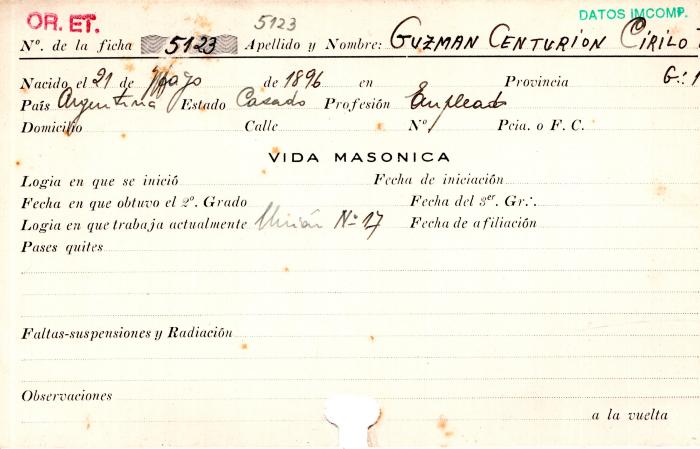 OR. ET. 5123 DATOS IMCOMP.
Nº. de la ficha 5123 Apellido y Nombre: GUZMAN CENTURION CIRILO
Nacido el 21 de Mayo de 1896 en Provincia G.:
País Argentina Estado Casado Profesión Empleado
Domicilio Calle Nº Pcia. o F. C.
VIDA MASONICA
Logia en que se inició Fecha de iniciación
Fecha en que obtuvo el 2º. Grado Fecha del 3er. Gr∴
Logia en que trabaja actualmente Unión Nº 17 Fecha de afiliación
Pases quites
Faltas-suspensiones y Radiación
Observaciones
a la vuelta